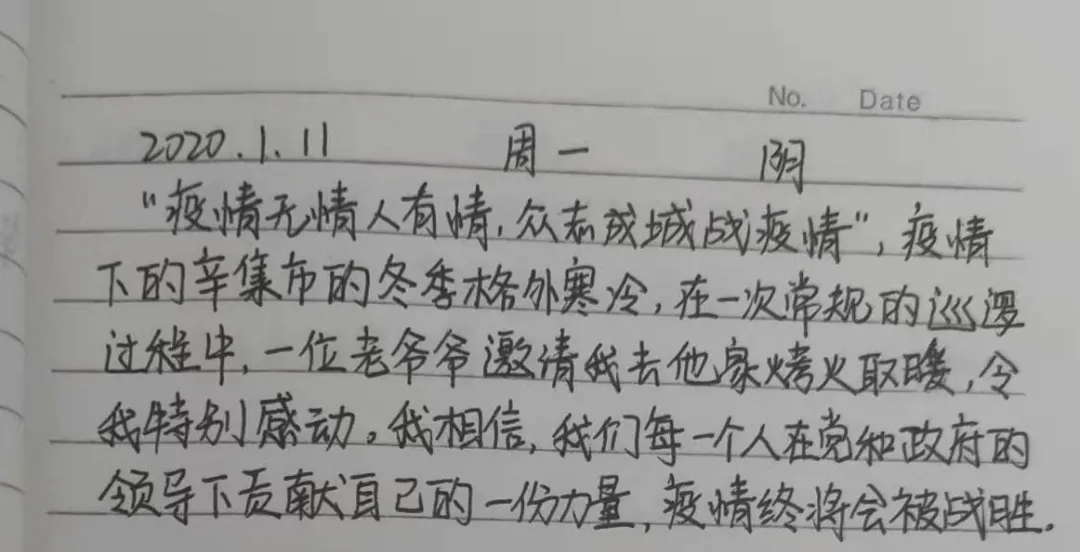 No. Date
2020.1.11 周一 阴
“疫情无情人有情,众志成城战疫情”,疫情
下的辛集市的冬季格外寒冷,在一次常规的巡逻
过程中,一位老爷爷邀请我去他家烤火取暖,令
我特别感动。我相信,我们每一个人在党和政府的
领导下贡献自己的一份力量,疫情终将会被战胜.